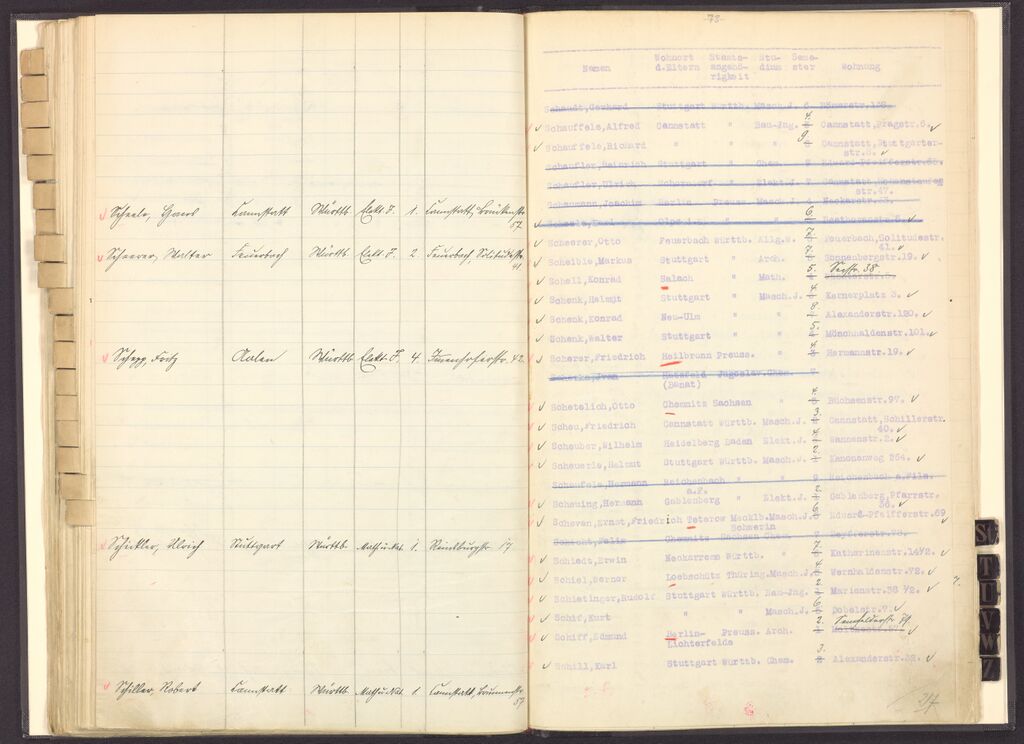 Scheele, Hans Cannstatt Württb. Elekt. J. 1. Cannstatt, Brückenstr.
57.
Scheerer, Walter Feuerbach Württb. Elekt. J. 2 Feuerbach, Solitudestr.
41.
Schepp, Fritz Aalen Württb. Elekt. J. 4
Ulrich Stuttgart Württb. 1.
Schiller, Robert Cannstatt Württb. 1 Cannstatt, Brunnenstr.
57
-78-
Namen Wohnort d.Eltern Staatsangehörigkeit Studium Semester Wohnung
Schaudt, Gerhard Stuttgart Württb. Masch.J. 6 Römerstr.
Schauffele, Alfred Cannstatt " Bau-Jng. 4. Cannstatt, Pragstr.6.
Schauffele, Richard " " " 9. Cannstatt, Stuttgarter-
str.8.
Schaufler, Heinrich Stuttgart " Chem.
Schaufler, Ulrich Schorndorf " Elekt.J. Cannstatt
str.47.
Schaumann, Joachim Berlin Preuss. Masch.J. Neckarstr.
6.
Scheerer, Otto Feuerbach Württb. Allg.W. 7. Feuerbach, Solitudestr.
41.
Scheible, Markus Stuttgart " Arch. 7. Sonnenbergstr.19.
Schell, Konrad Balach " Math. 5. Seestr. 38.
Schenk, Helmut Stuttgart " Masch.J. 4. Kernerplatz 3.
Schenk, Konrad Neu-Ulm " " 8. Alexanderstr.120.
Schenk, Walter Stuttgart " " 5. Mönchhaldenstr.101.
Scherer, Friedrich Heilbronn Preuss. " 4. Hermannstr.19.
Scherka, Ivan Hatzfeld Jugoslav. Chem.
(Banat)
Schetelich, Otto Chemnitz Sachsen " 4. Büchsenstr.97.
Scheu, Friedrich Cannstatt Württb. Masch.J. 3. Cannstatt, Schillerstr.
40.
Scheuber, Wilhelm Heidelberg Baden Elekt.J. 4. Wannenstr.2.
Scheuerle, Helmut Stuttgart Württb. Masch.J. 2. Kanonenweg 254.
Scheufele, Hermann Reichenbach " " 9 Reichenbach a.Fils.
a.F.
Scheuing, Hermann Gablenberg " Elekt.J. 2. Gablenberg, Pfarrstr.
36.
Schevan, Ernst, Friedrich Teterow Mecklb. Masch.J. 6 Eduard-Pfeifferstr.69
Schwerin
Schicht, Felix Chemnitz Sachsen Chem.
Schiedt, Erwin Neckarrems Württb. " 7. Katharinenstr.14½.
Schiel, Werner Loebschütz Thüring. Masch.J. 4. Wernhaldenstr.72.
Schietinger, Rudolf Stuttgart Württb. Bau-Jng. 2. Marienstr.38 ½.
Schif, Kurt " " Masch.J. 6. Dobelstr.7.
Schiff, Edmund Berlin- Preuss. Arch. 2.
Lichterfelde
Schill, Karl Stuttgart Württb. Chem. 3. Alexanderstr.32.
S
T
U
V
W
Z